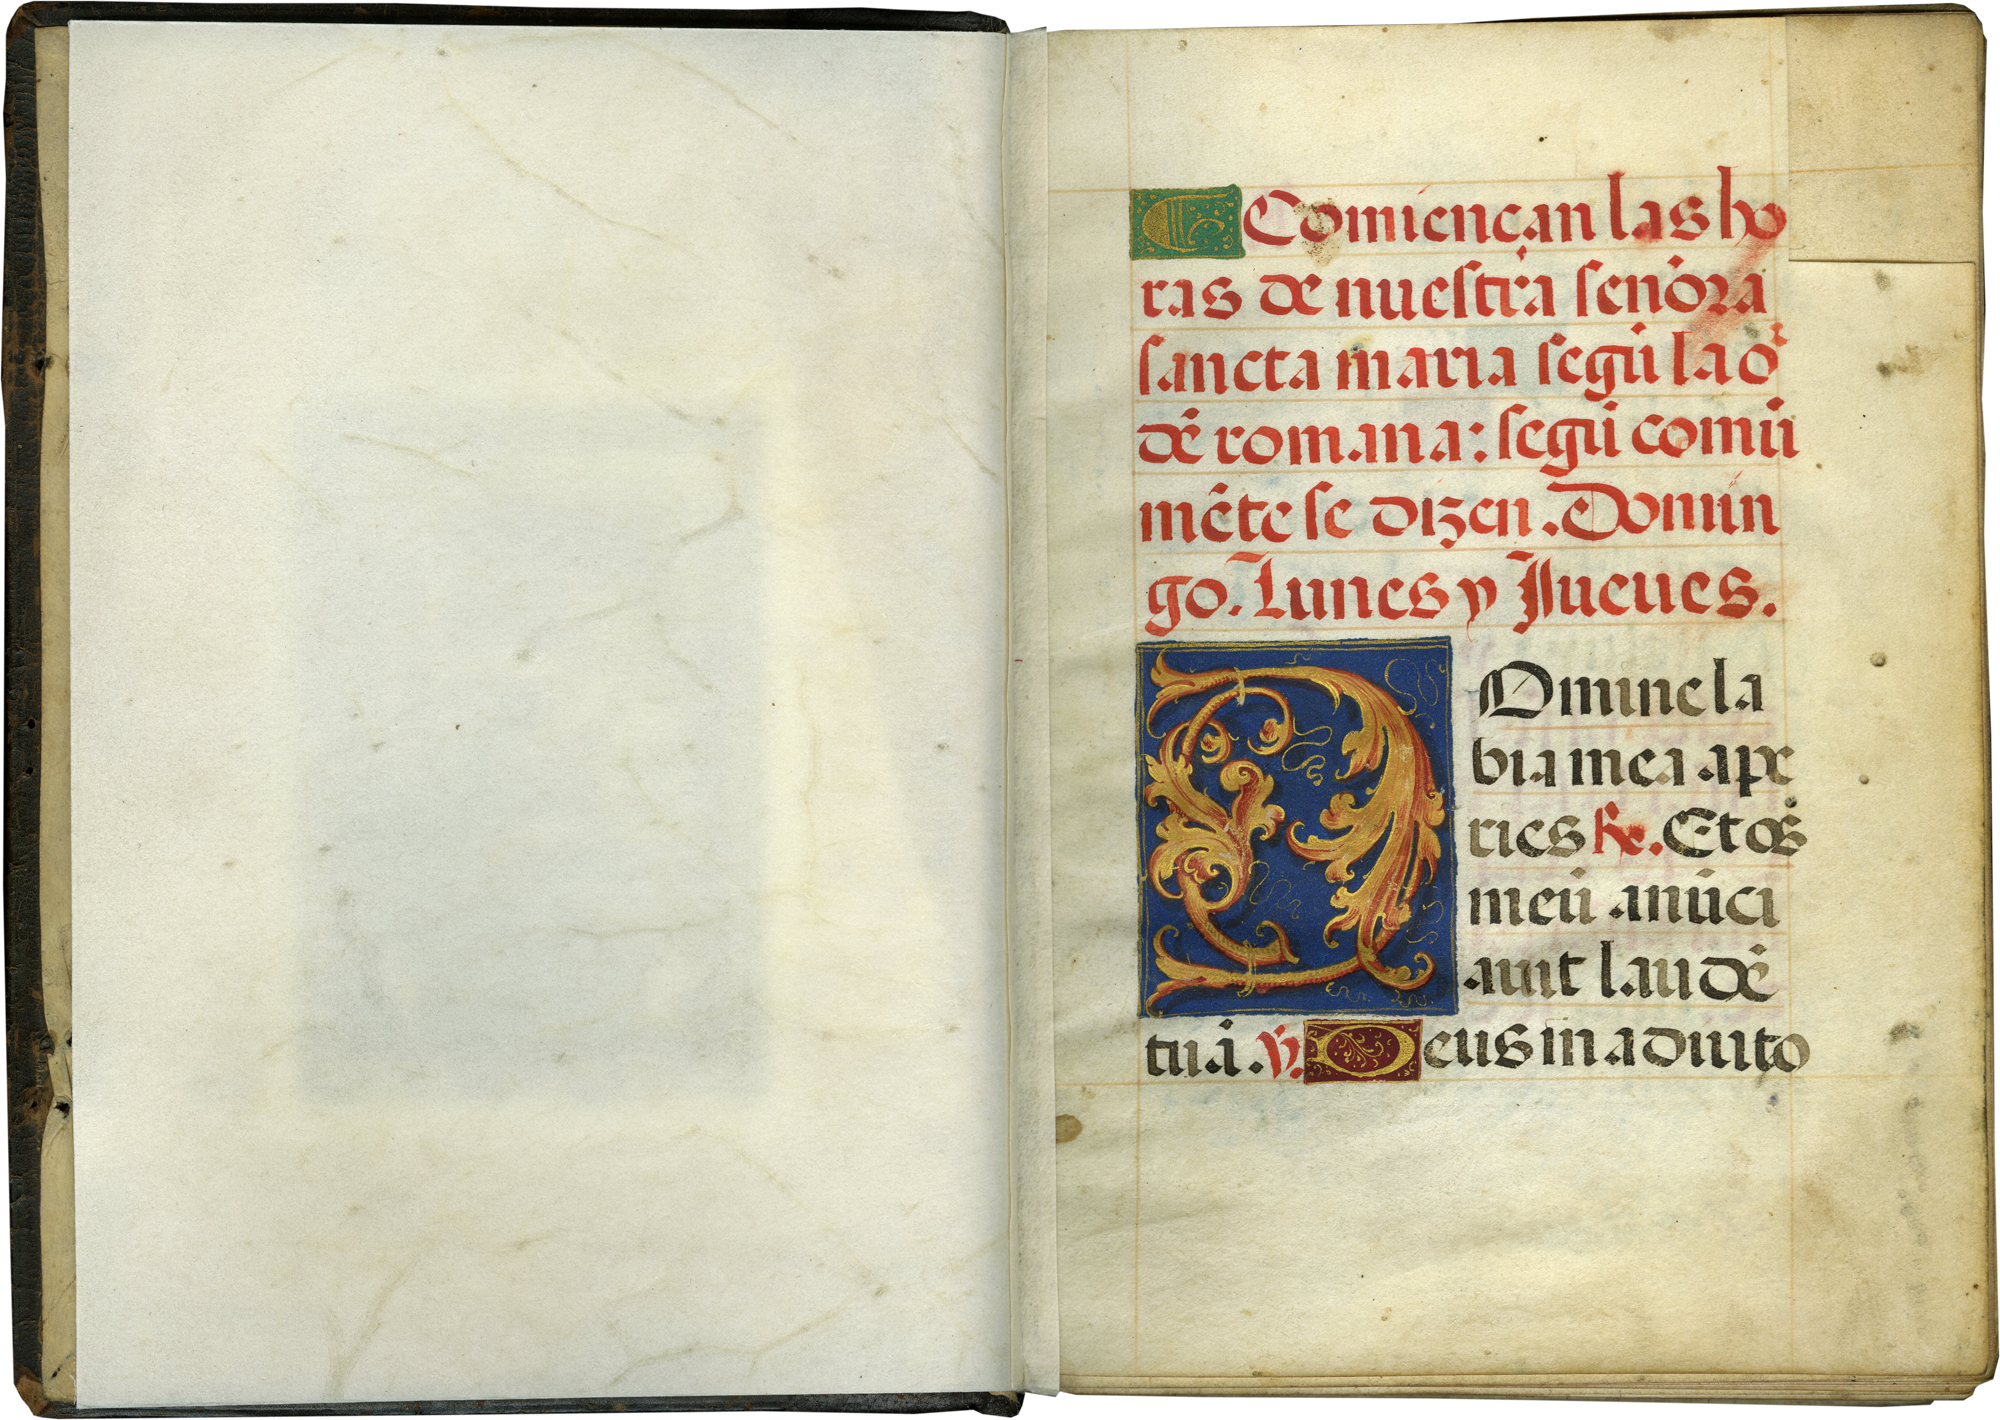 ¶ Comiençan las ho
ras de nuestra señora
sancta maria segū la or
dē romana: segū comū
mēte se dizen. Domin
go. Lunes y Jueues.
DOmine la
bia mea ape
ries ℟. Et os
meū anūci
auit laudē
tuā. ℣. Deus in adiuto